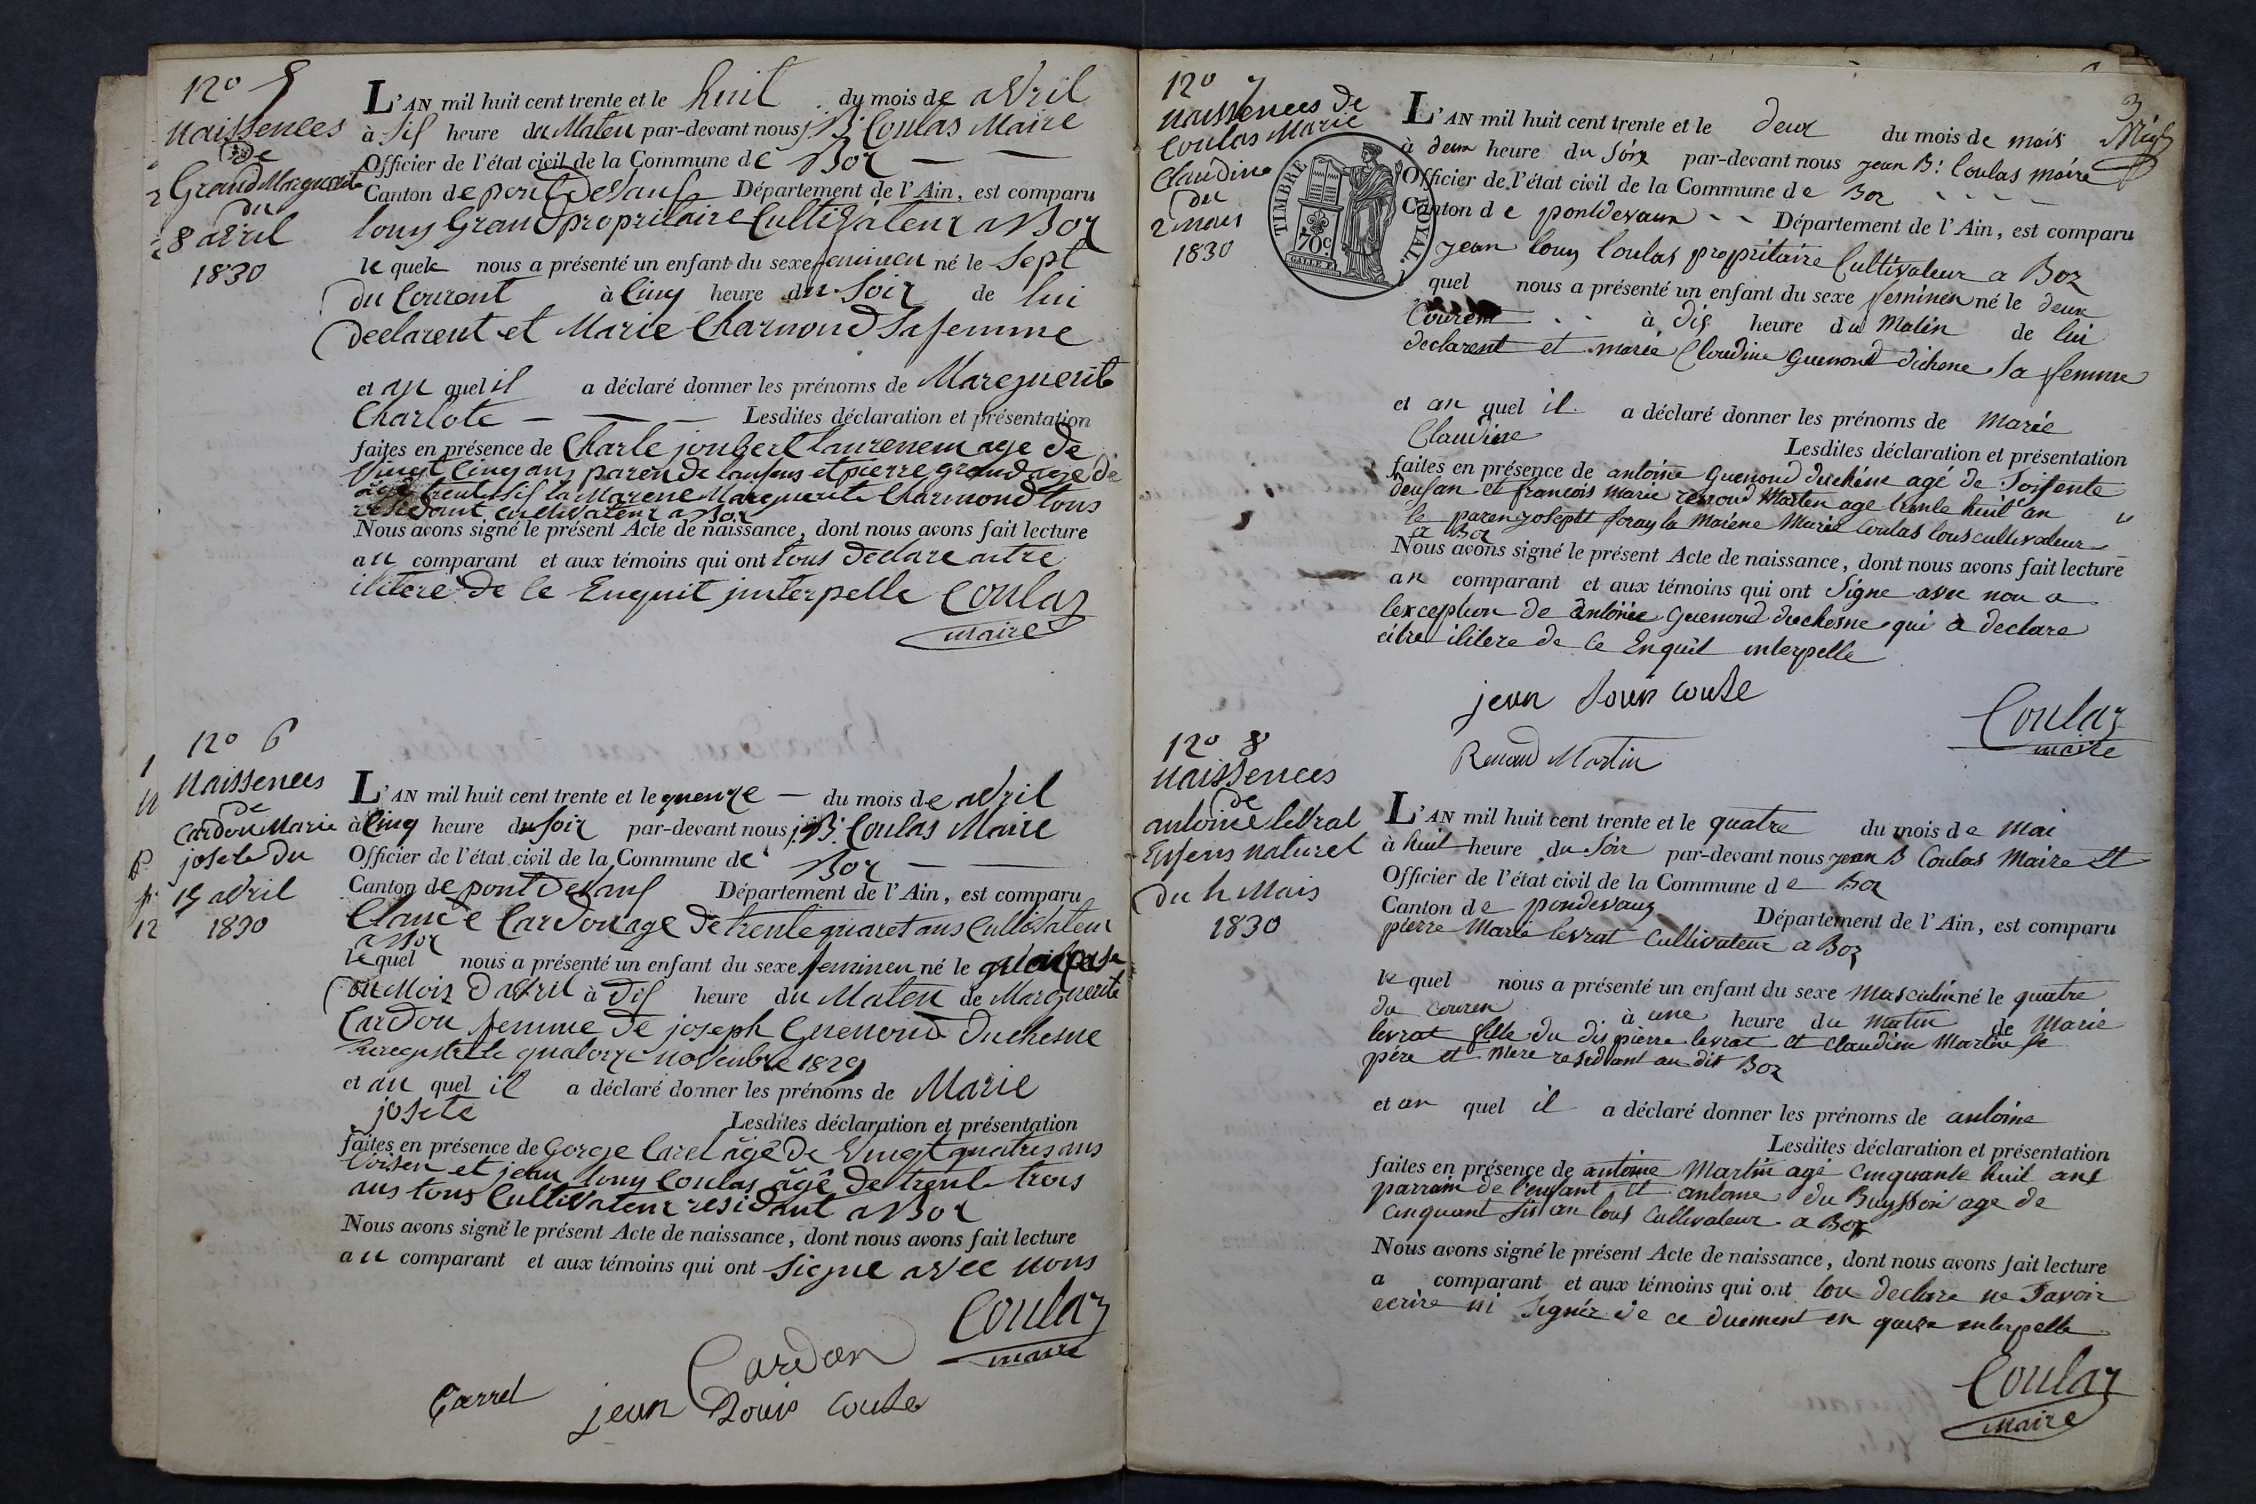 12o 5
Naissences
de
Grand Marguerite
du
8 avril
1830
L'AN mil huit cent trente et le huit du mois de avril
à sis heure du Maten par-devant nous j. B. Coulas Maire
Officier de l'état civil de la Commune de Boz
Canton de pont De Vaus Département de l'Ain, est comparu
louis Grand propriétaire Cultivateur a Boz
le quel nous a présenté un enfant du sexe feminen né le Sept
du Courent à Cinq heure du Soir de lui
declarent et Marie Charnond Sa femme
et au quel il a déclaré donner les prénoms de Marguerite
Charlote Lesdites déclaration et présentation
faites en présence de Charle joubert laurenem age de
Vingt Cinq ans paren de lanfens et pierre grand age de
âgé trente sis la Marene Marguerite Charmond tous
residant cultivateur a Boz
Nous avons signé le présent Acte de naissance, dont nous avons fait lecture
au comparant et aux témoins qui ont tous declare aitre
ilitere de ce Enquit jnterpelle Coulas
maire
12o 6
Naissences
de
Cardon Marie
josete du
15 avril
1830
L'AN mil huit cent trente et le quenze du mois de avril
à Cinq heure du soir par-devant nous j. B. Coulas Maire
Officier de l'état civil de la Commune de Boz
Canton de pont De Vaus Département de l'Ain, est comparu
Claude Cardon age de trente quaret ans Cultivateur
a Boz
le quel nous a présenté un enfant du sexe feminen né le
du Mois D'avril à Dis heure du Maten de Marguerite
Cardon femme de joseph Guenoud Duchesne
quatorze novembre 1829
et au quel il a déclaré donner les prénoms de Marie
josete
Lesdites déclaration et présentation
faites en présence de Gorge Carel âgé de Vingt quatres ans
Voisen et jean louis Coulas âgé de trente trois
ans tous Cultivateur residant a Boz
Nous avons signé le présent Acte de naissance, dont nous avons fait lecture
au comparant et aux témoins qui ont signe avec nous
Coulas
maire
Cardon
Carrel jean Louis coulas
3
12o 7
Naissences de
Coulas Marie
Claudine
du
2 mais
1830
TIMBRE ROYAL
70c
L'AN mil huit cent trente et le deux du mois de mais
à deux heure du soir par-devant nous jean B. Coulas maire
Officier de l'état civil de la Commune de Boz
Canton de pontdevaux Département de l'Ain, est comparu
jean louis Coulas propriétaire Cultivateur a Boz
quel nous a présenté un enfant du sexe feminen né le deux
Courent à dis heure du Matin de lui
declarent et marie Claudine Guenoud dichene sa femme
et au quel il a déclaré donner les prénoms de Marie
Claudine
Lesdites déclaration et présentation
faites en présence de antoine Guenoud duchéne agé de Soisente
deusan et francois Marie renoud Marten age trente huit an
le paren joseph foray la Maréne Marie Coulas tous cultivateur
a Boz
Nous avons signé le présent Acte de naissance, dont nous avons fait lecture
au comparant et aux témoins qui ont signe avec nou a
lexception de antoine Guenoud duchesne qui a declare
eitre ilitere de ce Enquit interpelle
jean Louis coulas
Coulas
maire
Renoud Martin
12o 8
Naissences
de
antoine levrat
Enfens naturel
du 4 Mais
1830
L'AN mil huit cent trente et le quatre du mois de mai
à huit heure du soir par-devant nous jean B Coulas Maire et
Officier de l'état civil de la Commune de Boz
Canton de pondevaux Département de l'Ain, est comparu
pierre Marie levrat cultivateur a Boz
le quel nous a présenté un enfant du sexe masculin né le quatre
du couren à une heure du matin de Marie
levrat fille du dis pierre levrat et claudine Martin se
pére et mere residant au dit Boz
et au quel il a déclaré donner les prénoms de antoine
Lesdites déclaration et présentation
faites en présence de antoine Martin agé cinquante huit ans
parrain de l'enfant et antoine du Buysson age de
cinquant sis an tous cultivateur a Boz
Nous avons signé le présent Acte de naissance, dont nous avons fait lecture
a comparant et aux témoins qui ont tou declare ne savoir
ecrire ni signer de ce duement en quis enterpelle
Coulas
maire